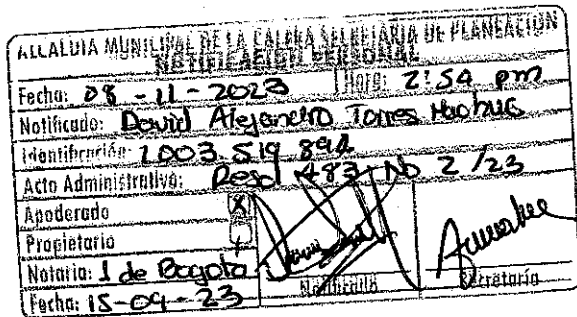 ALCALDIA MUNICIPAL DE LA CALERA SECRETARIA DE PLANEACION
NOTIFICACION PERSONAL
Fecha: 08 - 11 - 2023 Hora: 2:54 pm
Notificado: David Alejandro Torres
Identificación: 1003.519.894
Acto Administrativo: Resol 483 No 2/23
Apoderado X
Propietario
Notaria: 1 de Bogota
Fecha: 15-09-23 Notificado Secretaría